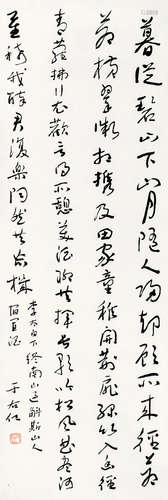 暮從碧山下山月隨人歸却顧所來徑蒼
蒼橫翠微相攜及田家童稚開荊扉綠竹入幽徑
青蘿拂行衣歡言得所憩美酒聊共揮長歌吟松風曲盡河
星稀我醉君復樂陶然共忘機
李太白下終南山過斛斯山人
宿置酒
于右任